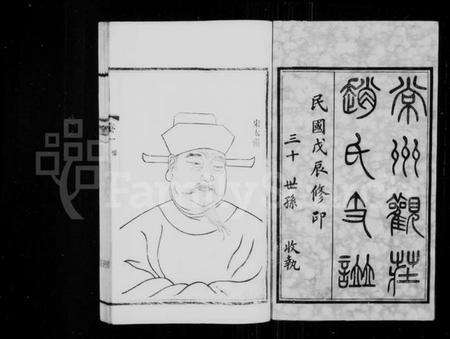 常州觀莊
趙氏支譜
民國戊辰修印
三十世孫 收執
宋太祖
FamilySearch